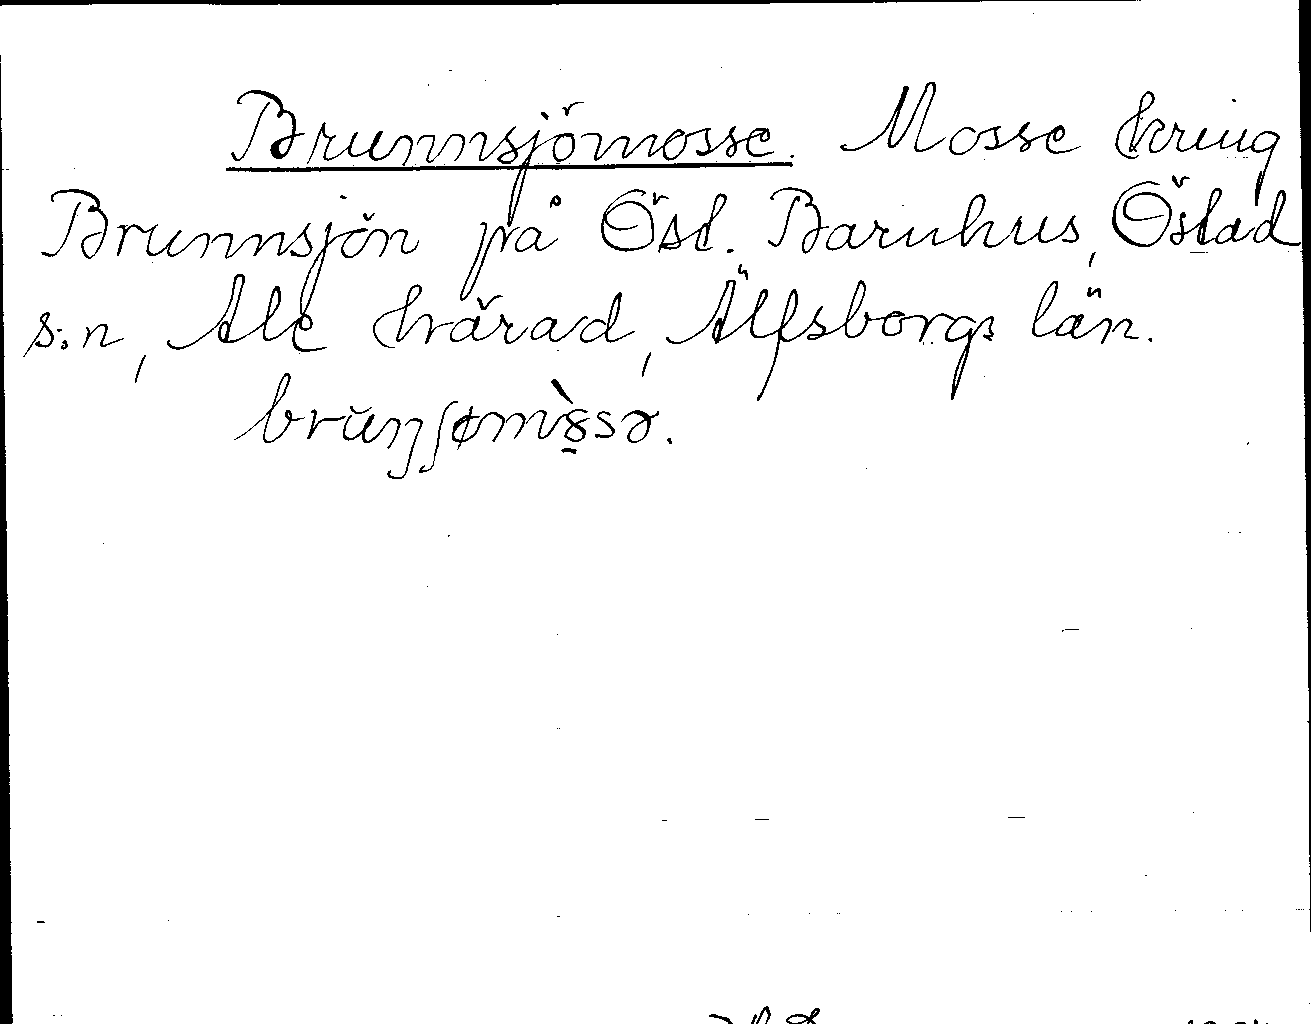 Brunnsjömosse. Mosse kring
Brunnsjön på Öst. Barnhus, Östad
s:n, Ale härad, Älfsborgs län.